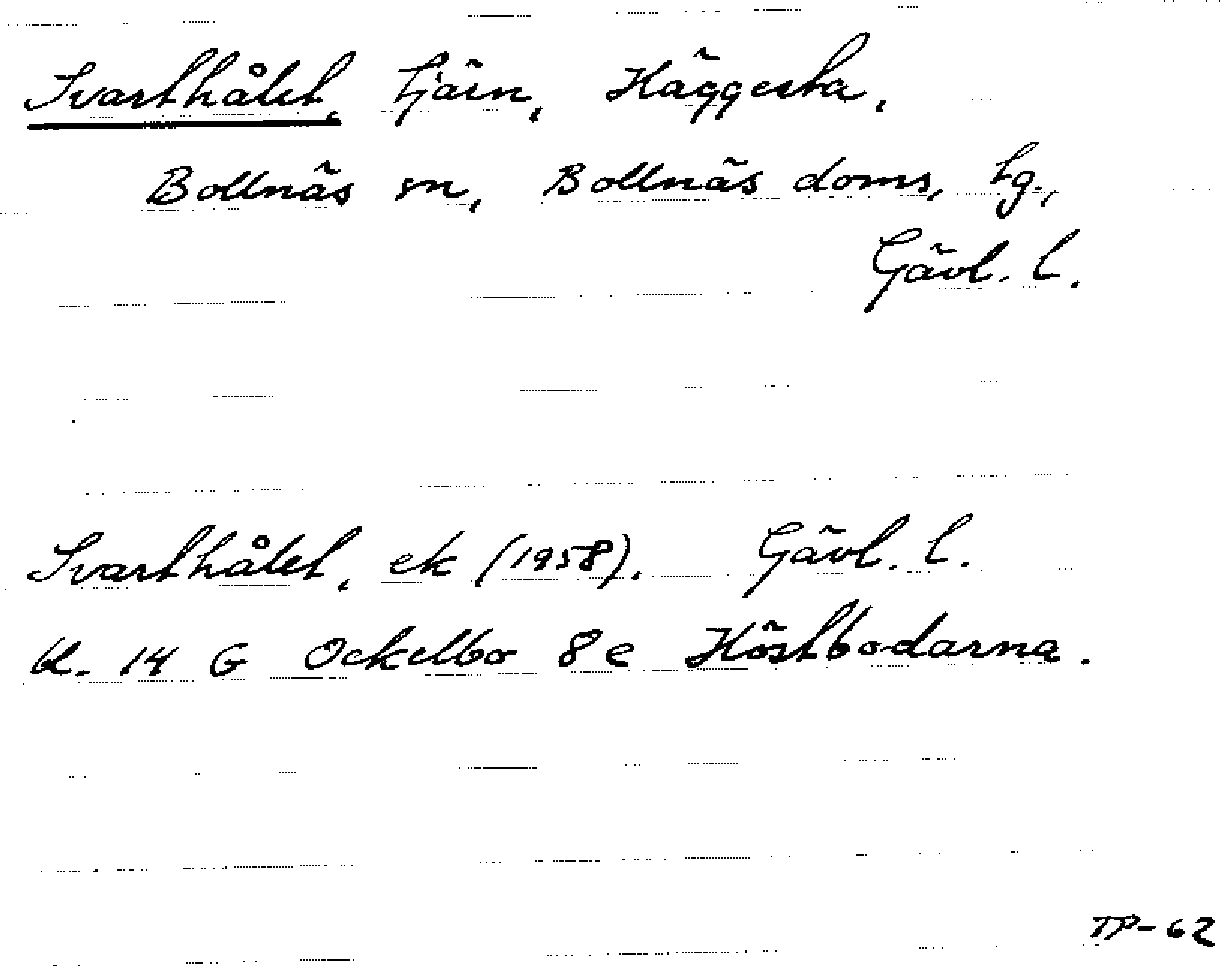 Svarthålet, tjärn, Häggesta,
Bollnäs sn, Bollnäs doms, tg.,
Gävl. l.
Svarthålet, ek (1958). Gävl. l.
bl. 14 G Ockelbo 8e Höstbodarna.
TP-62